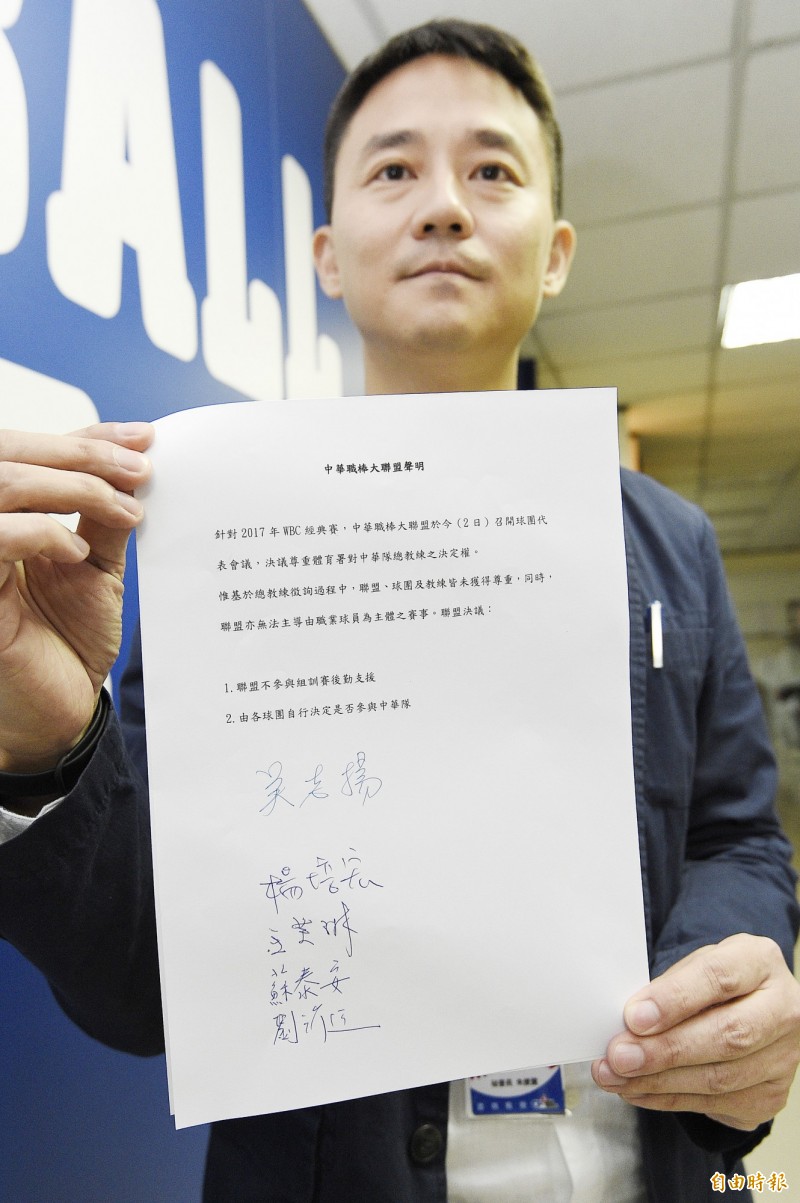 BALL
中華職棒大聯盟聲明
針對 2017 年 WBC 經典賽，中華職棒大聯盟於今（2 日）召開球團代
表會議，決議尊重體育署對中華隊總教練之決定權。
惟基於總教練徵詢過程中，聯盟、球團及教練皆未獲得尊重，同時，
聯盟亦無法主導由職業球員為主體之賽事。聯盟決議：
1. 聯盟不參與組訓賽後勤支援
2. 由各球團自行決定是否參與中華隊
吳志揚
楊培宏
蘇泰安
自由時報